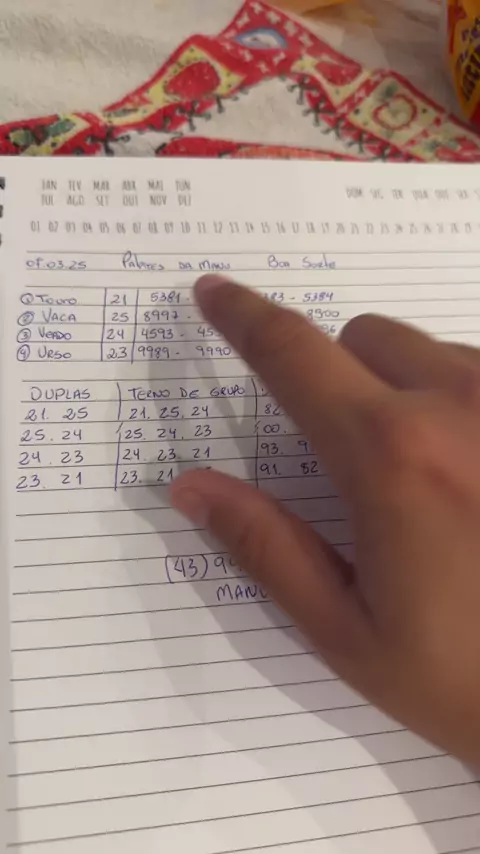 JAN FEV MAR ABR MAI JUN
JUL AGO SET OUT NOV DEZ
DOM SEG TER QUA QUI SEX
01 02 03 04 05 06 07 08 09 10 11 12 13 14 15 16 17 18 19 20 21 22 23 24 25 26 27 28 29
07.03.25 Palpites da Manu Boa Sorte
① Touro 21 5381 - 383 - 5384
② Vaca 25 8997 - 8900
③ Veado 24 4593 - 45
④ Urso 23 9989 - 9990
DUPLAS TERNO DE GRUPO
21. 25 21. 25. 24 82
25. 24 25. 24. 23 00.
24. 23 24. 23. 21 93. 9
23. 21 23. 21 91. 82
(43) 99
MANU